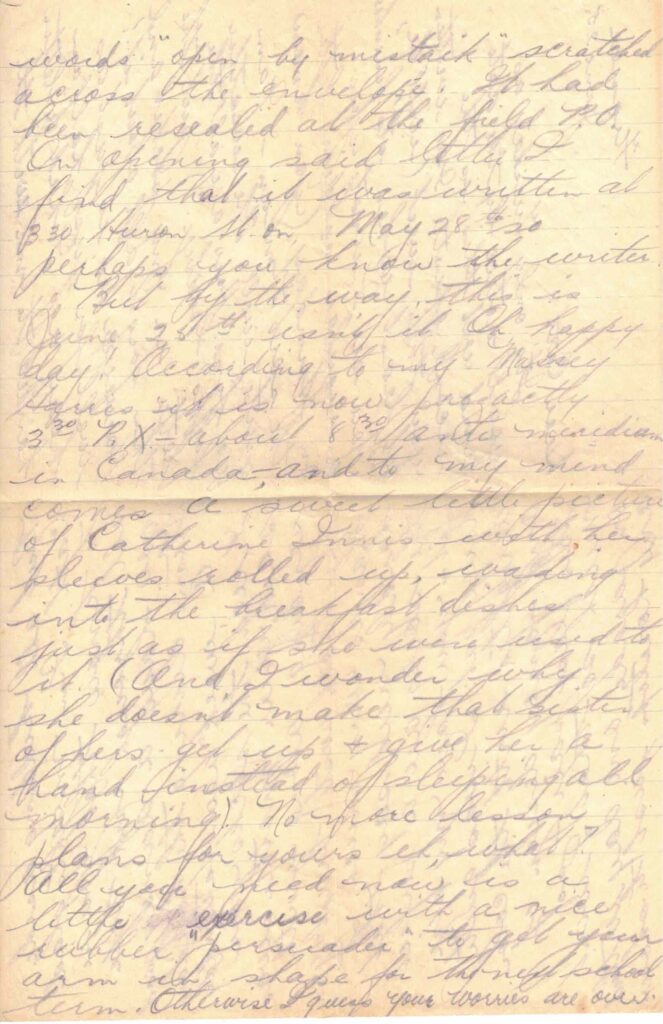 words "open by mistaik" scratched
across the envelope. It had
been resealed at the field P.O.
On opening said letter I
find that it was written at
330 Huron St on May 28th/20
perhaps you know the writer.
But by the way, this is
June 28th isn't it. Oh, happy
day! According to my Massey
Harris it is now
3 30 P.X – about 8 30 ante meridiam
in Canada – and to my mind
comes a sweet little picture
of Catherine Innis with her
sleeves rolled up, wading
into the breakfast dishes
just as if she were used to
it. (And I wonder why
she doesn't make that sister
of hers get up + give her a
hand instead of sleeping all
morning). No more lesson
plans for yours eh, what?
All you need now is a
little exercise with a nice
rubber "persuader" to get your
arm in shape for the new school
term. Otherwise I guess your worries are over.